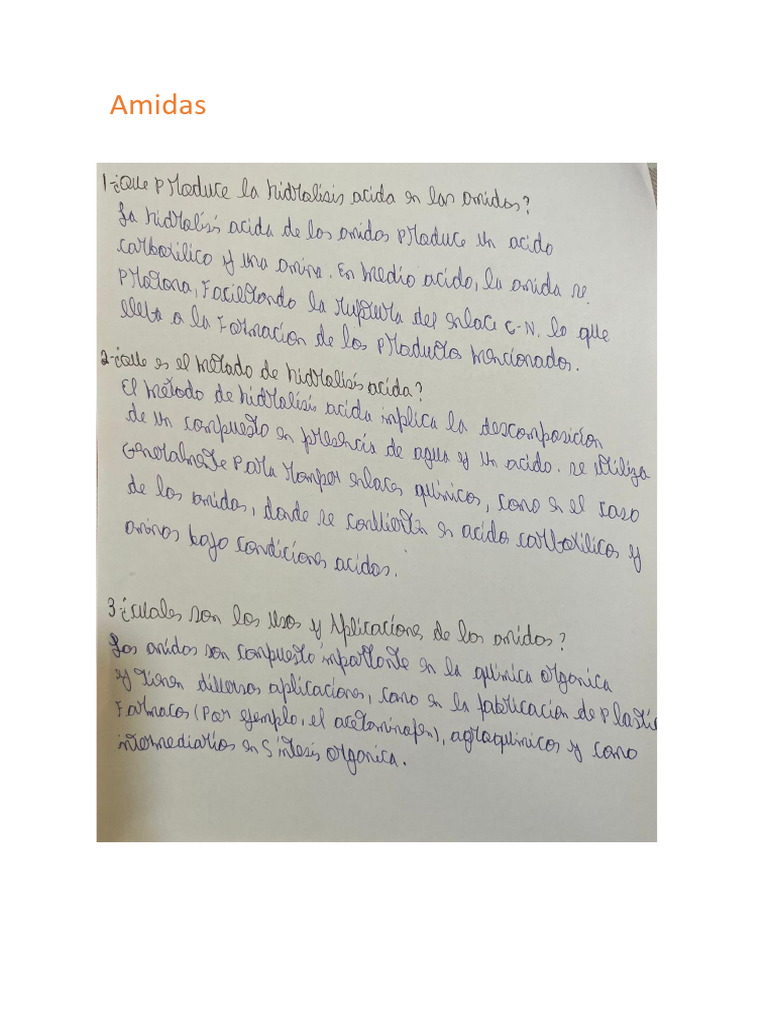 Amidas
1-¿Que produce la hidrolisis acida en las amidas?
La hidrolisis acida de las amidas produce un acido
carboxilico y una amina. En medio acido, la amida se
protona, Facilitando la ruptura del enlace C-N. lo que
lleva a la Formacion de los productos mencionados.
2-¿Que es el método de hidrolisis acida?
El método de hidrolisis acida implica la descomposicion
de un compuesto en presencia de agua y un acido. se utiliza
Generalmente para romper enlaces quimicos, como en el caso
de las amidas, donde se convierten en acido carboxilicos y
aminas bajo condiciones acidas.
3 ¿cuales son los usos y Aplicaciones de las amidas?
Las amidas son compuesto importante en la quimica organica
y tienen diversas aplicaciones, como en la fabricacion de Plastic
Farmacos (Por ejemplo, el acetominofen), agroquimicos y como
intermediarios en Síntesis organica.